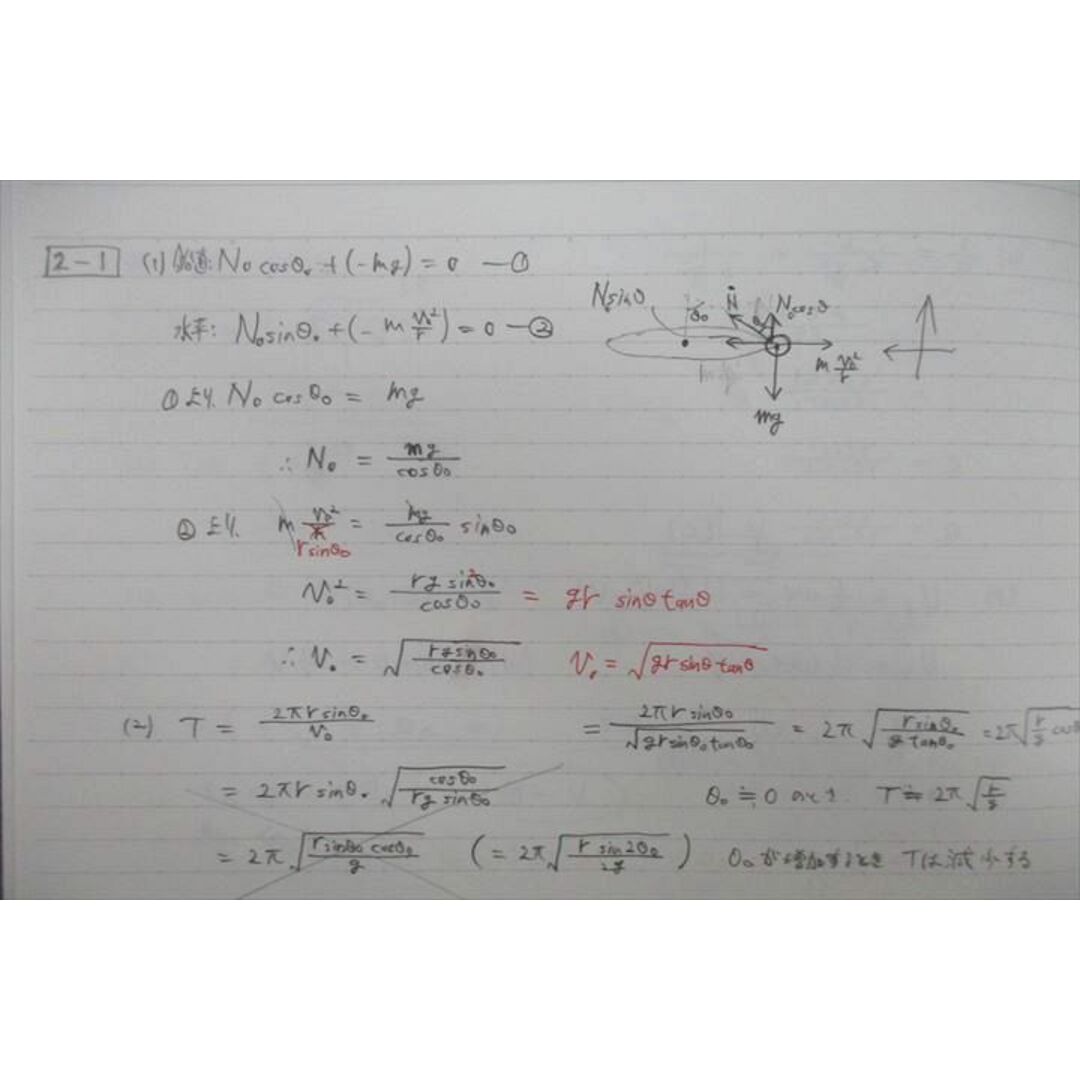 2-1 (1) 鉛直: N₀cosθ₀ + (-mg) = 0 —①
水平: N₀sinθ₀ + (-m v₀²/r) = 0 —②
Nsinθ θ₀ N N₀cosθ
m v₀²/r
mg
①より. N₀ cosθ₀ = mg
∴ N₀ = mg/cosθ₀
②より. m v₀²/r = mg/cosθ₀ sinθ₀
rsinθ₀
v₀² = rg sin²θ₀/cosθ₀ = gr sinθtanθ
∴ v₀ = √(rgsinθ₀/cosθ₀) v₀ = √(gr sinθ tanθ)
(2) T = 2πrsinθ₀/v₀ = 2πrsinθ₀/√(grsinθ₀tanθ₀) = 2π√(rsinθ₀/gtanθ₀) = 2π√(r/g cosθ
= 2πr sinθ₀ √(cosθ₀/rg sinθ₀) θ₀≒0 のとき T≒2π√(r/g)
= 2π√(rsinθ₀cosθ₀/g) (= 2π√(r sin2θ₀/2g)) θ₀が増加するとき Tは減少する